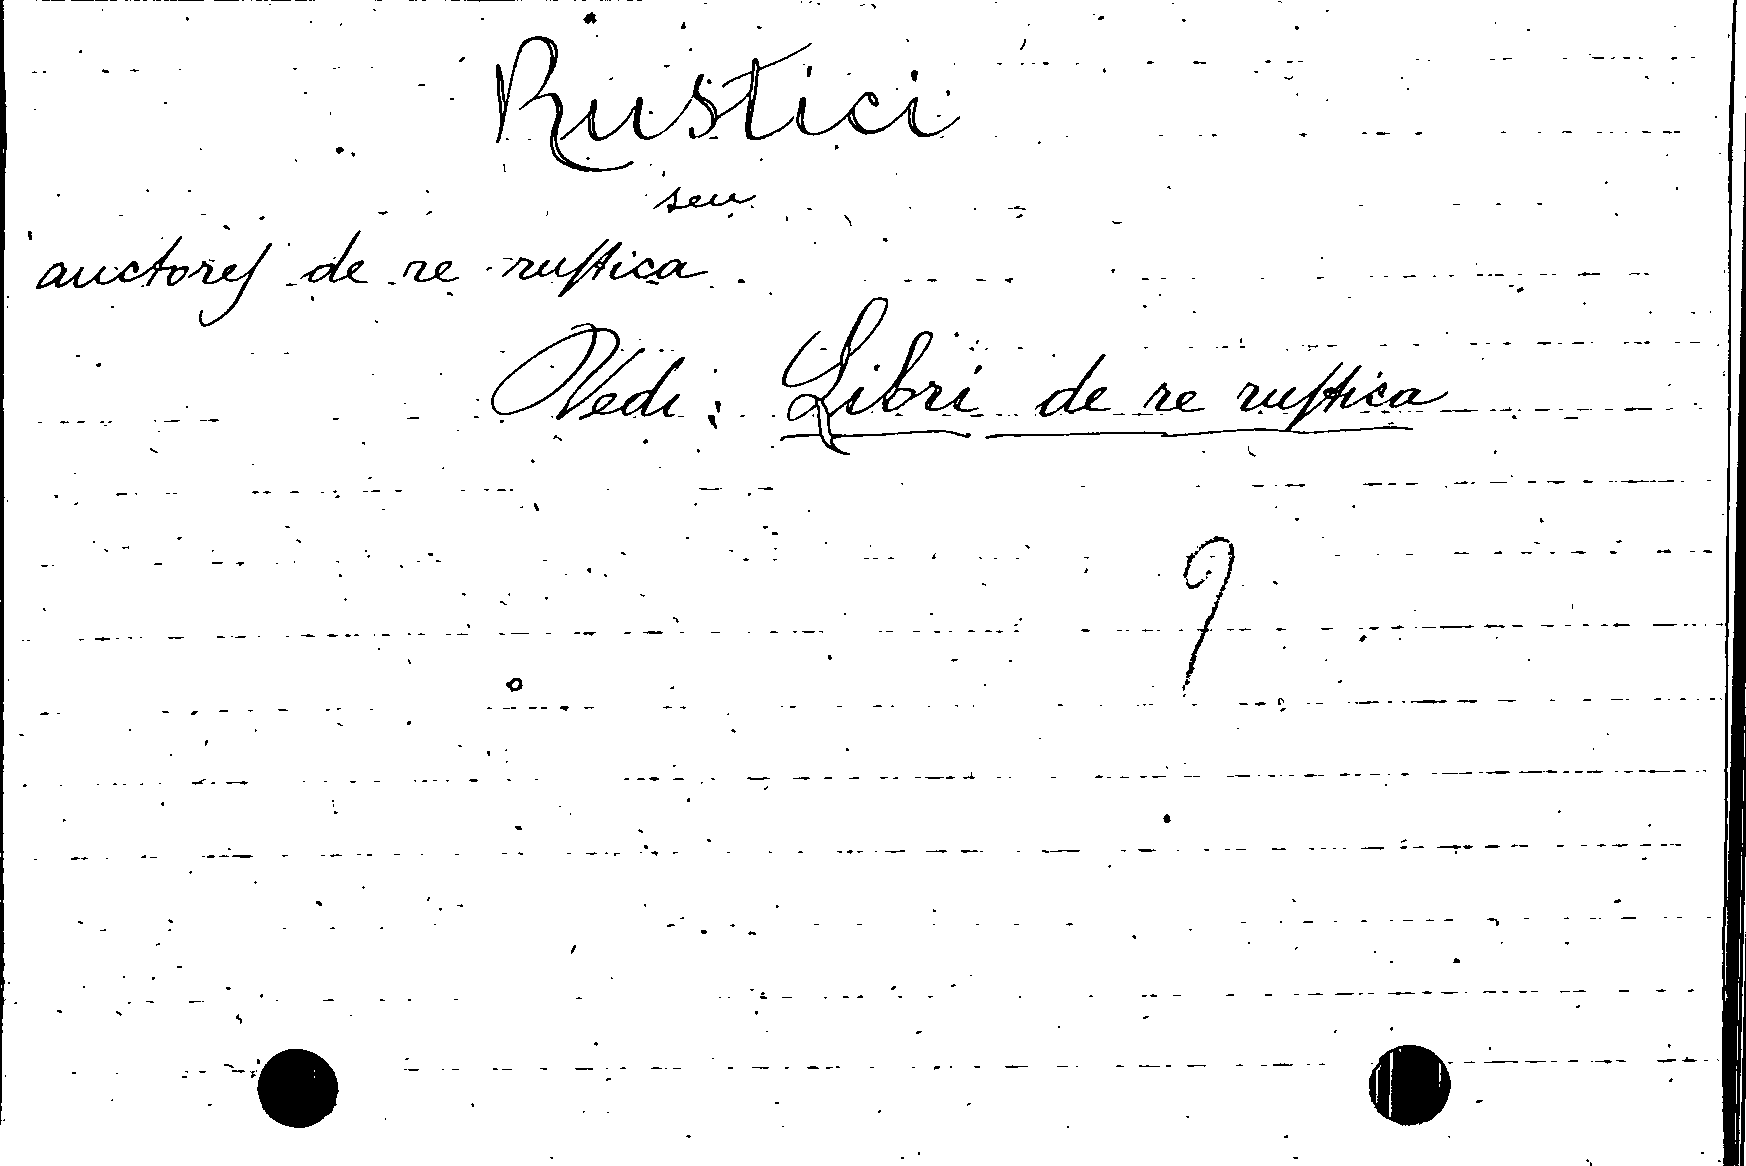 Rustici
seu
auctores de re rustica
Vedi: Libri de re rustica